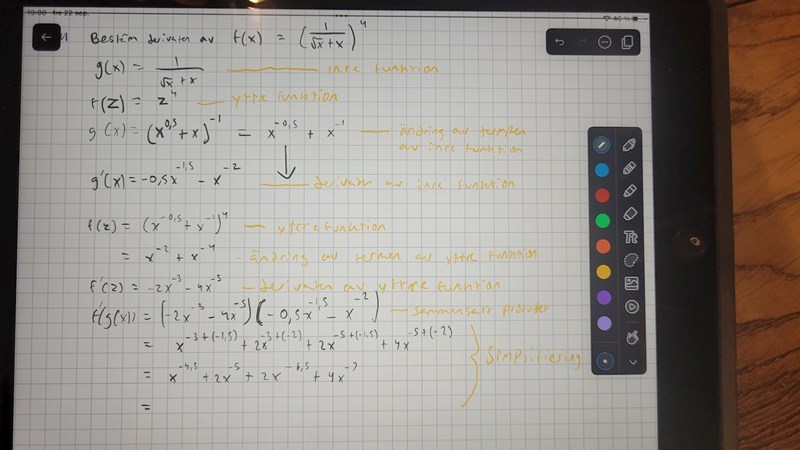 19:00 fre 22 sep.
46 %
Bestäm derivatan av f(x) = (1/(√x + x))^4
g(x) = 1/(√x + x) — inre funktion
f(z) = z^4 — yttre funktion
g(x) = (x^0,5 + x)^-1 = x^-0,5 + x^-1 — ändring av formen
av inre funktion
g'(x) = -0,5x^-1,5 - x^-2 — derivatan av inre funktion
f(z) = (x^-0,5 + x^-1)^4 — yttre funktion
= x^-2 + x^-4 - ändring av termen av yttre funktion
f'(z) = -2x^-3 - 4x^-5 — derivatan av yttre funktion
f'(g(x)) = (-2x^-3 - 4x^-5)(-0,5x^-1,5 - x^-2) — sammansatt
= x^-3+(-1,5) + 2x^-3+(-2) + 2x^-5+(-1,5) + 4x^-5+(-2)
Simplifiering
= x^-4,5 + 2x^-5 + 2x^-6,5 + 4x^-7
=